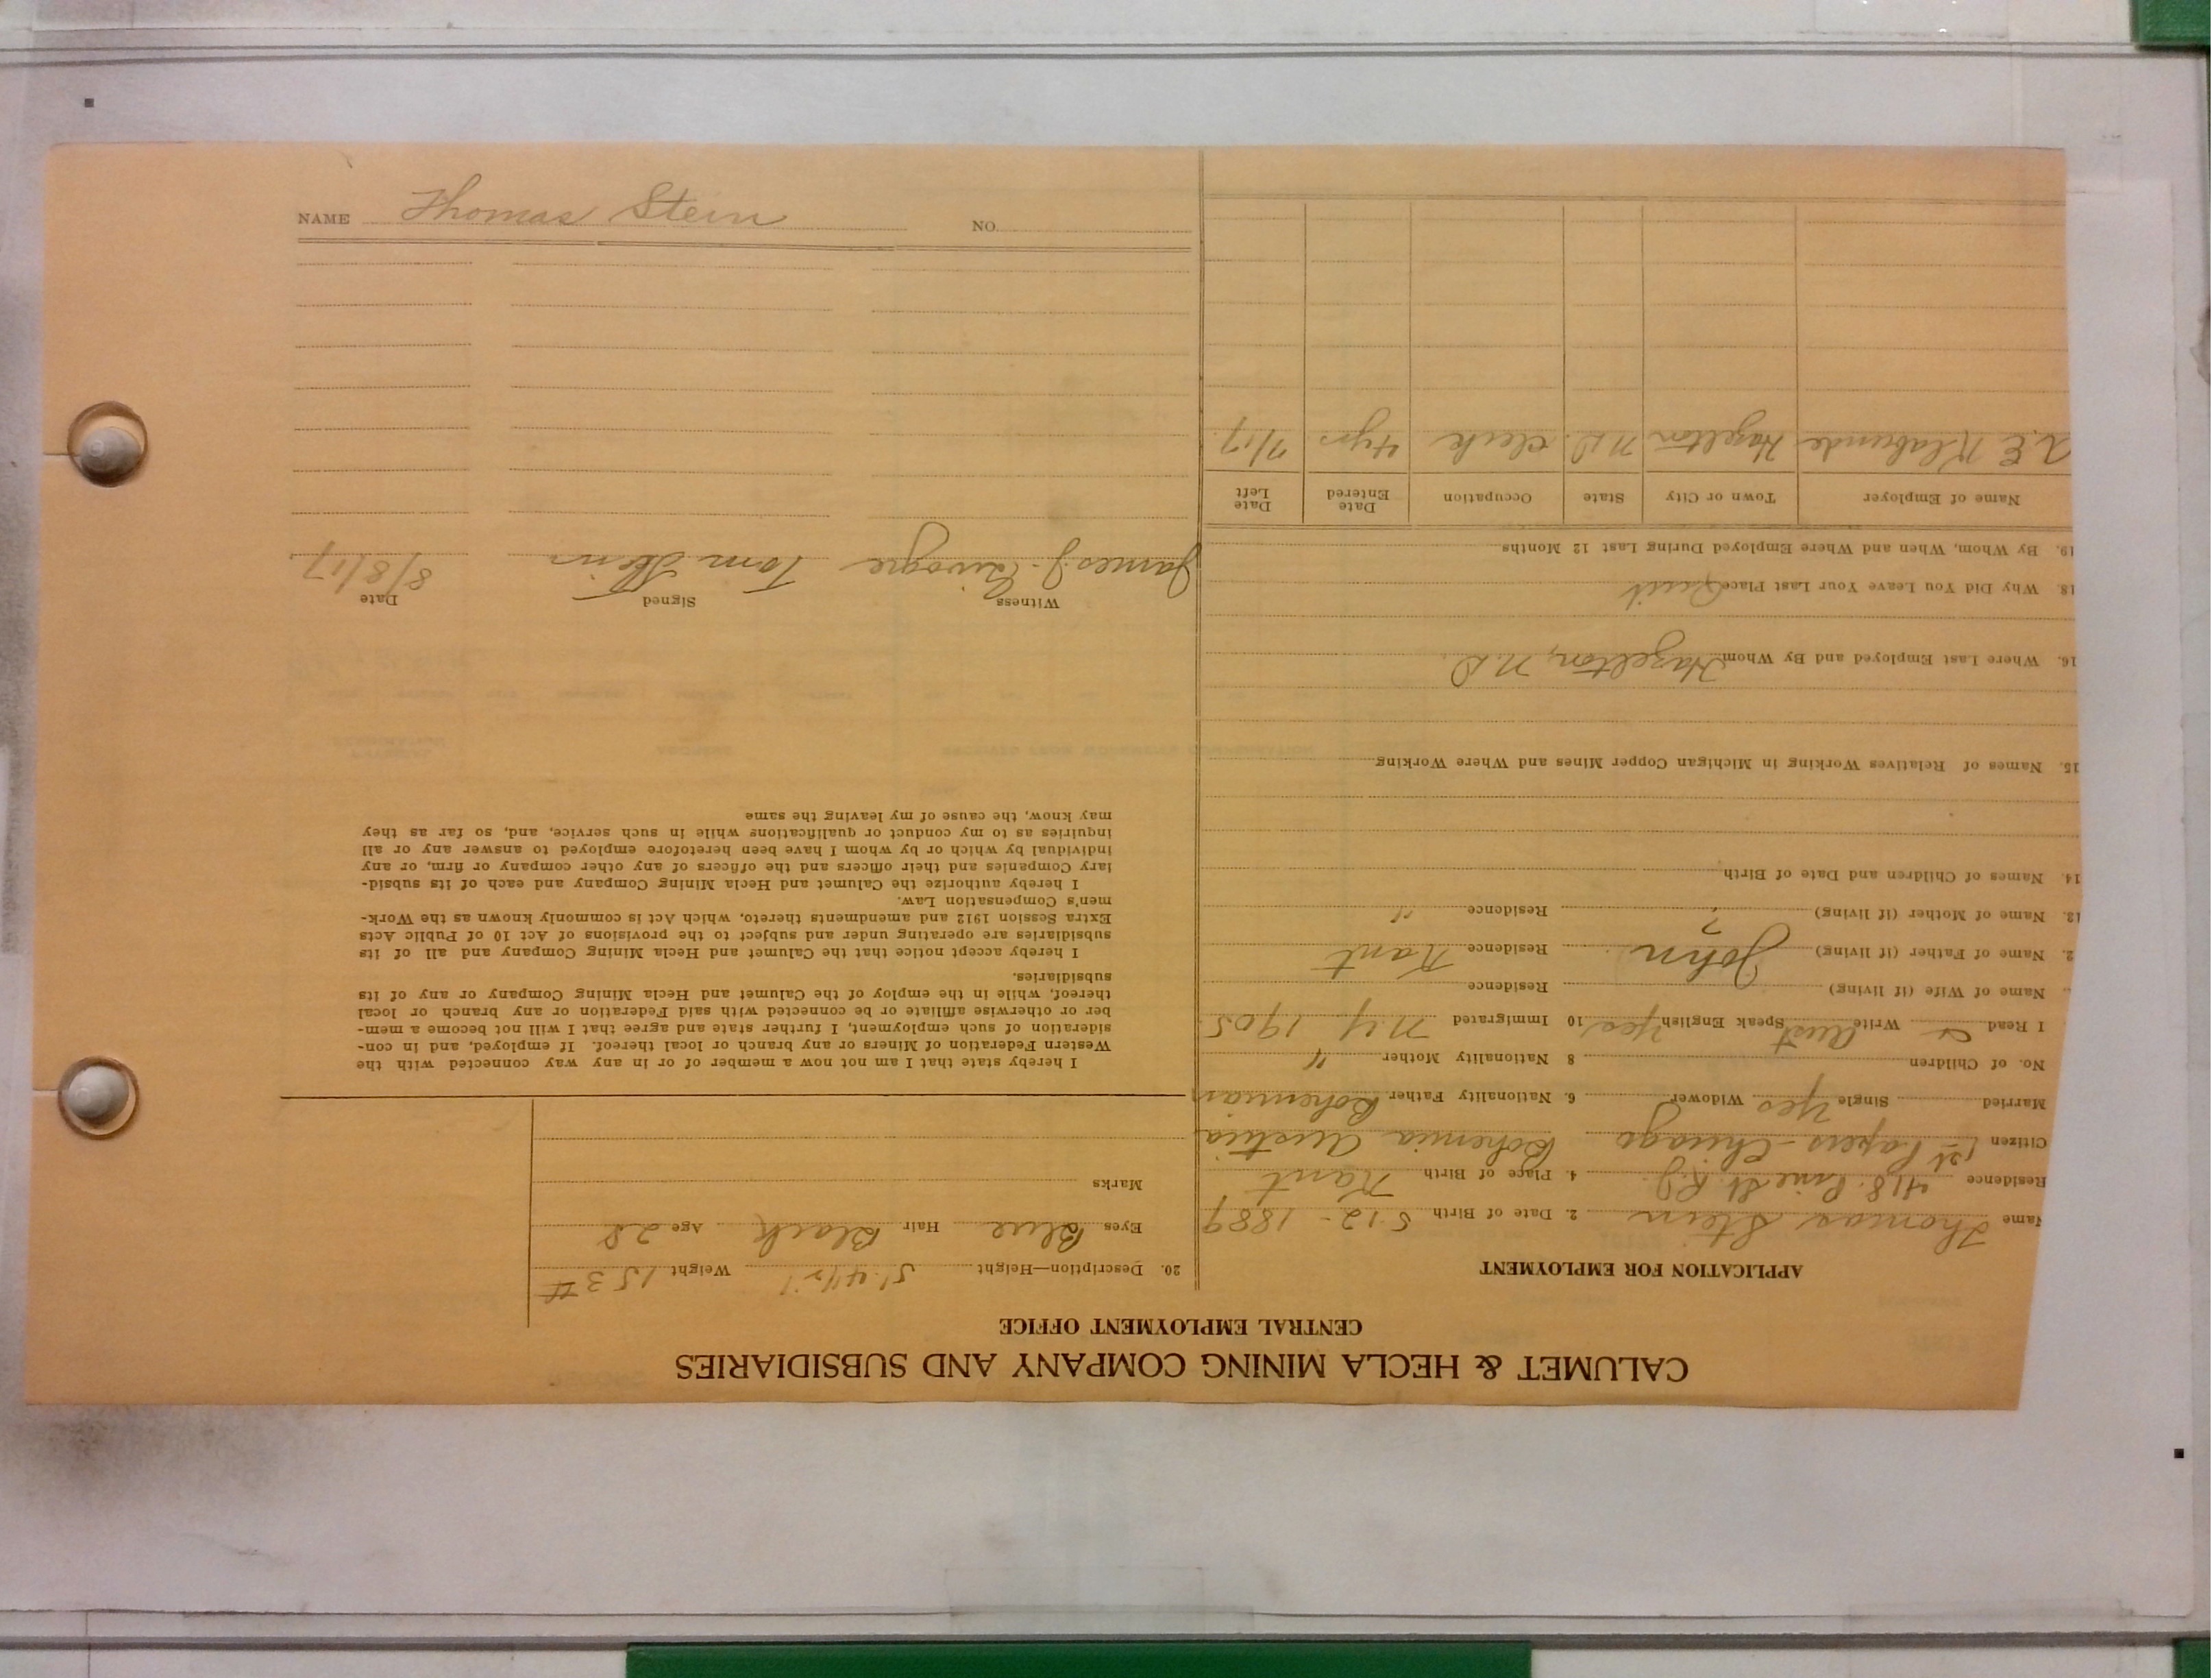 CALUMET & HECLA MINING COMPANY AND SUBSIDIARIES
CENTRAL EMPLOYMENT OFFICE
APPLICATION FOR EMPLOYMENT
Name Thomas Stein 2. Date of Birth 5-12-1889
Residence 418 Pine St. R.J. 4. Place of Birth Kant
Citizen 1st Papers - Chicago Bohemia Austria
Married Single Yes Widower 6. Nationality Father Bohemian
No. of Children 8 Nationality Mother "
I Read & Write Aust Speak English Yes 10 Immigrated N.Y 1905
Name of Wife (if living) Residence
2. Name of Father (if living) John Residence Kant
13. Name of Mother (if living) ? Residence "
14. Names of Children and Date of Birth
15. Names of Relatives Working in Michigan Copper Mines and Where Working
16. Where Last Employed and By Whom Hazelton, N.D.
18. Why Did You Leave Your Last Place Quit
19. By Whom, When and Where Employed During Last 12 Months
Name of Employer Town or City State Occupation Date Entered Date Left
Hazelton N.D. Clerk 4 yrs 7/17
20. Description—Height 5' 4 1/2" Weight 153 #
Eyes Blue Hair Black Age 28
Marks
I hereby state that I am not now a member of or in any way connected with the
Western Federation of Miners or any branch or local thereof. If employed, and in con-
sideration of such employment, I further state and agree that I will not become a mem-
ber or otherwise affiliate or be connected with said Federation or any branch or local
thereof, while in the employ of the Calumet and Hecla Mining Company or any of its
subsidiaries.
I hereby accept notice that the Calumet and Hecla Mining Company and all of its
subsidiaries are operating under and subject to the provisions of Act 10 of Public Acts
Extra Session 1912 and amendments thereto, which Act is commonly known as the Work-
men's Compensation Law.
I hereby authorize the Calumet and Hecla Mining Company and each of its subsid-
iary Companies and their officers and the officers of any other company or firm, or any
individual by which or by whom I have been heretofore employed to answer any or all
inquiries as to my conduct or qualifications while in such service, and, so far as they
may know, the cause of my leaving the same
Witness Signed Date
James J. Tom Stein 8/8/17
NAME Thomas Stein NO.